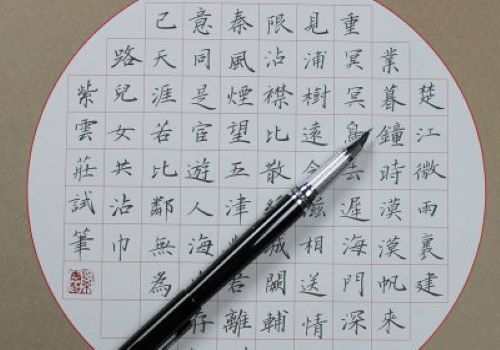 楚江微雨裏建
業暮鐘時漠漠帆來
重冥冥鳥去遲海門深
見浦樹遠滋相送情
限沾襟比散城闕輔
秦風煙望五津君離
意同是宦遊人海存
己天涯若比鄰無為
路兒女共沾巾
紫雲莊試筆